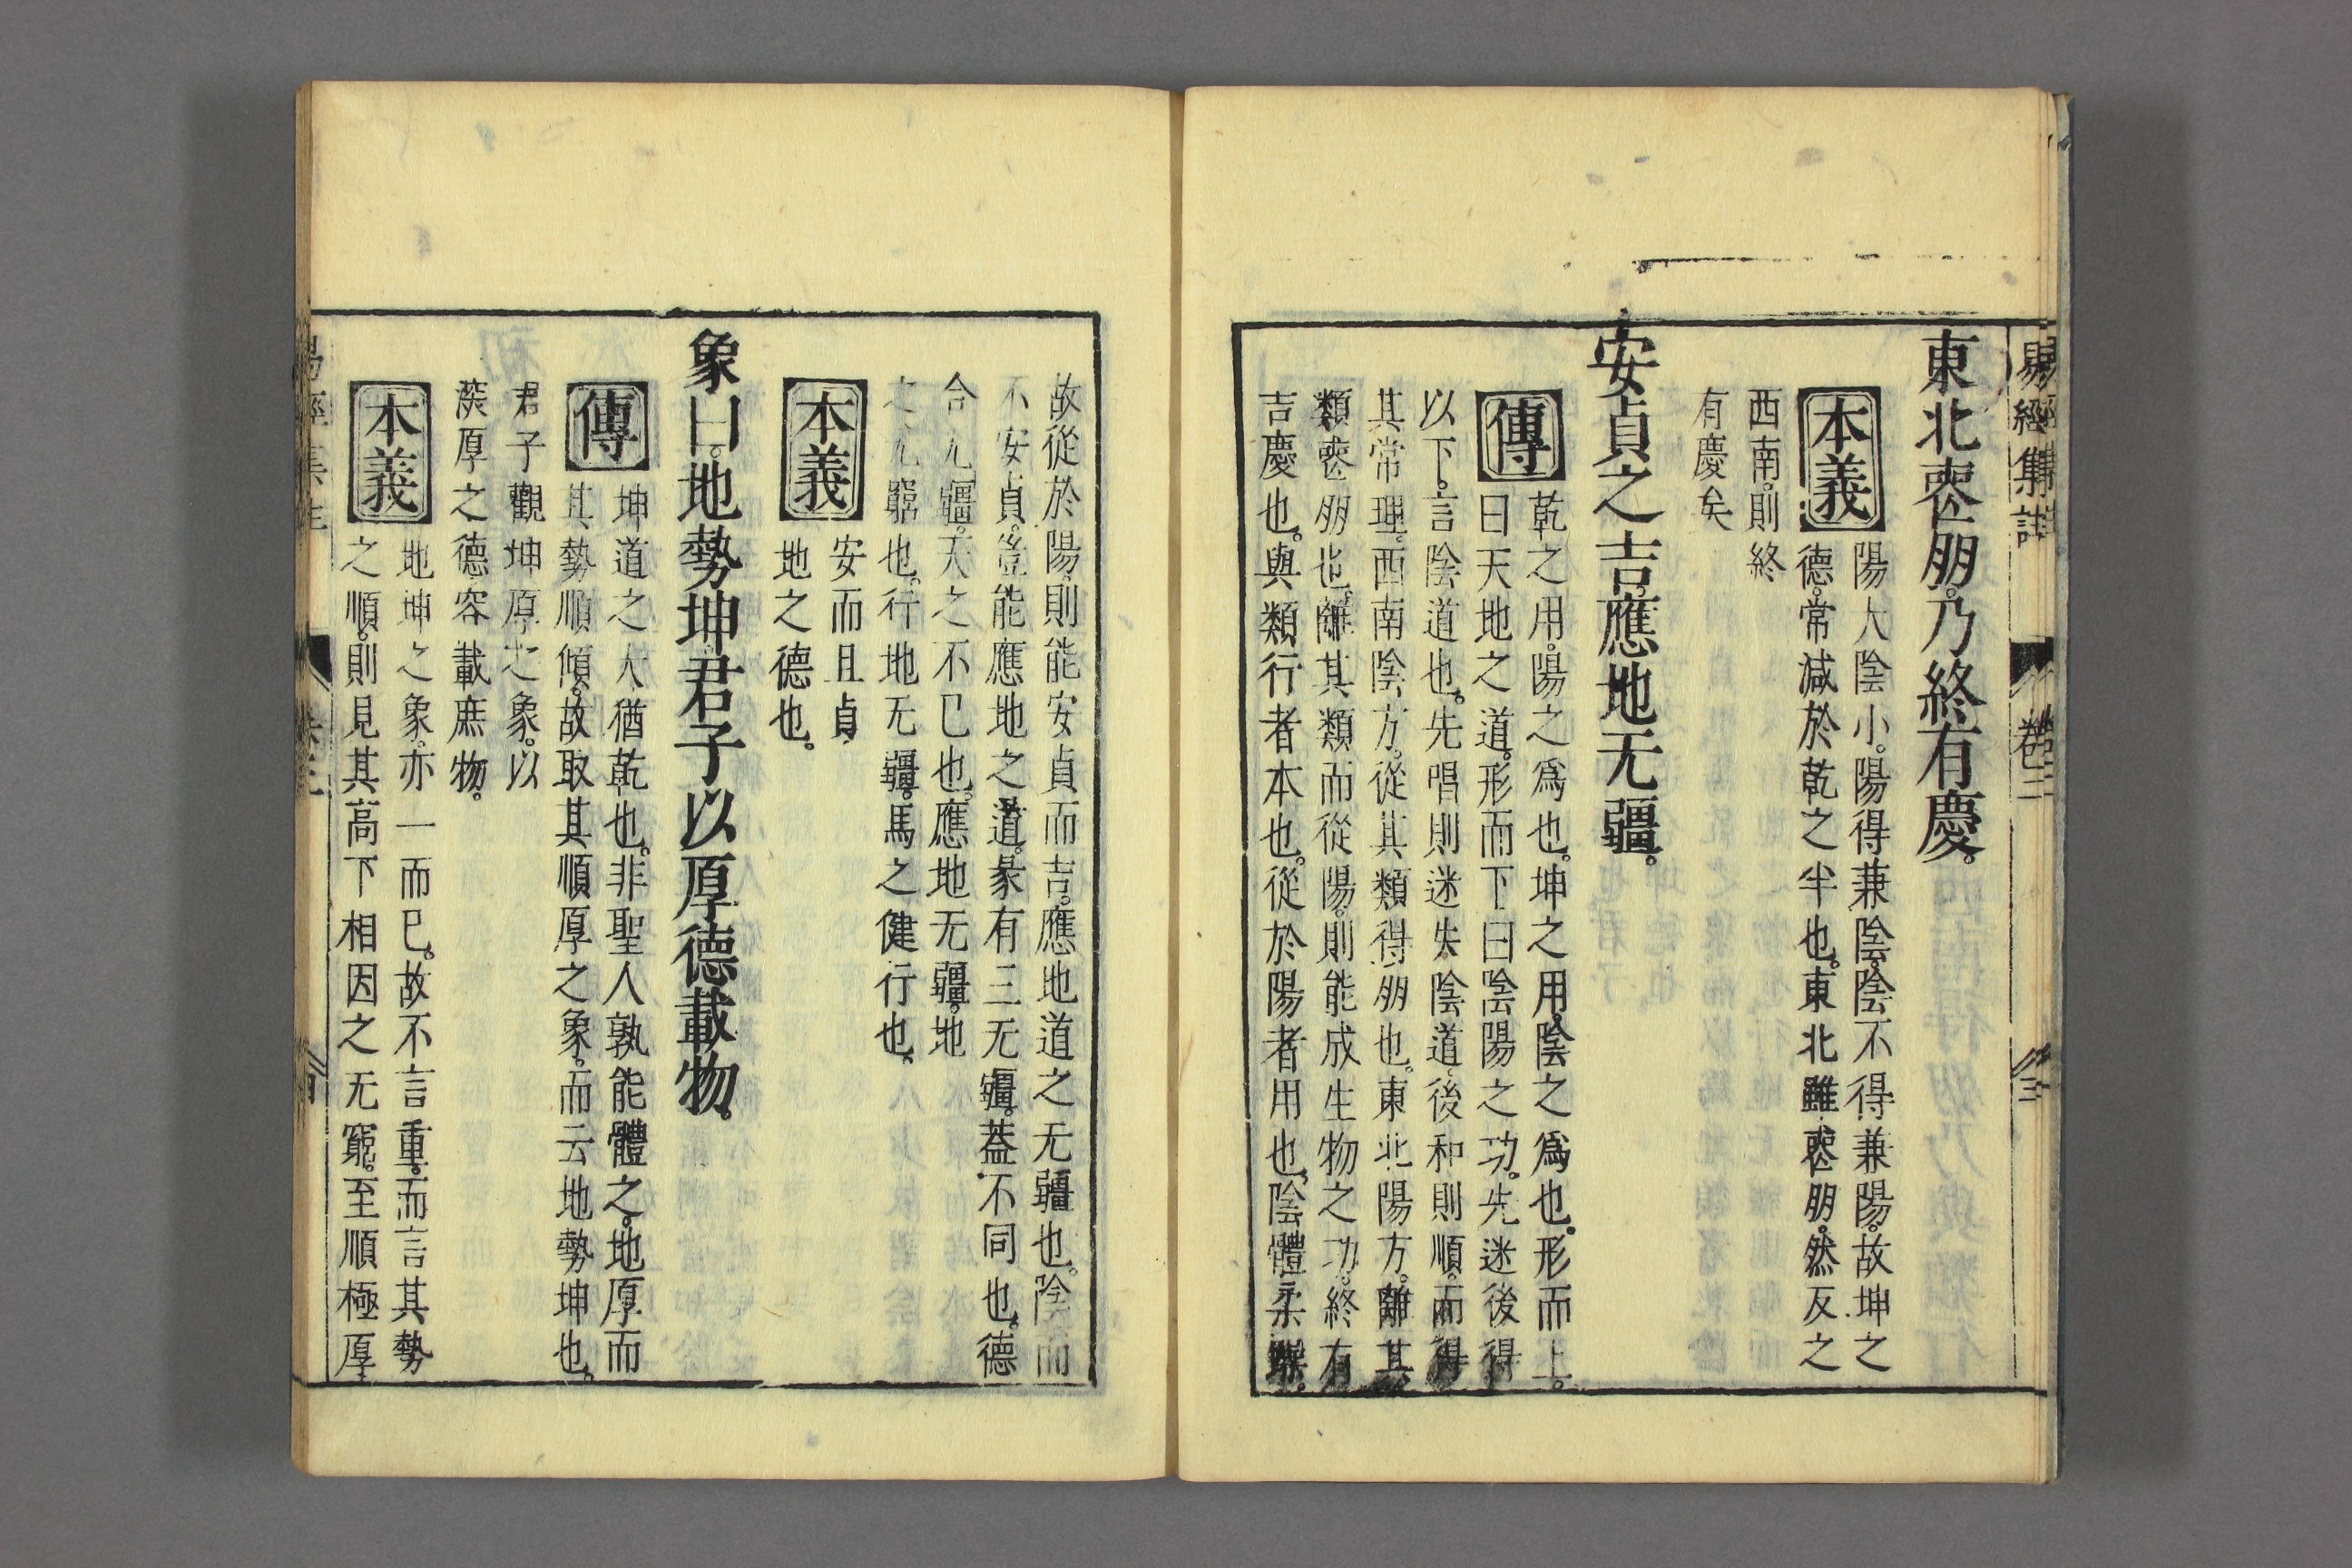 易經集註 卷二 三
東北喪朋。乃終有慶。
本義
陽大陰小。陽得兼陰。陰不得兼陽。故坤之
德。常減於乾之半也。東北雖喪朋。然反之
西南。則終
有慶矣
安貞之吉。應地无疆。
傳
乾之用。陽之爲也。坤之用。陰之爲也。形而上。
曰天地之道。形而下曰陰陽之功。先迷後得
以下。言陰道也。先唱則迷失陰道。後和則順。而得
其常理。西南陰方。從其類得朋也。東北陽方。離其
類喪朋也。離其類而從陽。則能成生物之功。終有
吉慶也。與類行者本也。從於陽者用也。陰體柔躁。
故從於陽。則能安貞而吉。應地道之无疆也。陰而
不安貞。豈能應地之道。彖有三无疆。蓋不同也。德
合无疆。天之不已也。應地无疆。地
之无窮也。行地无疆。馬之健行也。
本義
安而且貞
地之德也。
象曰。地勢坤君子以厚德載物。
傳
坤道之大猶乾也。非聖人孰能體之。地厚而
其勢順傾。故取其順厚之象。而云地勢坤也。
君子觀坤厚之象。以
深厚之德容載庶物。
本義
地坤之象。亦一而已。故不言重。而言其勢
之順。則見其高下相因之无窮。至順極厚